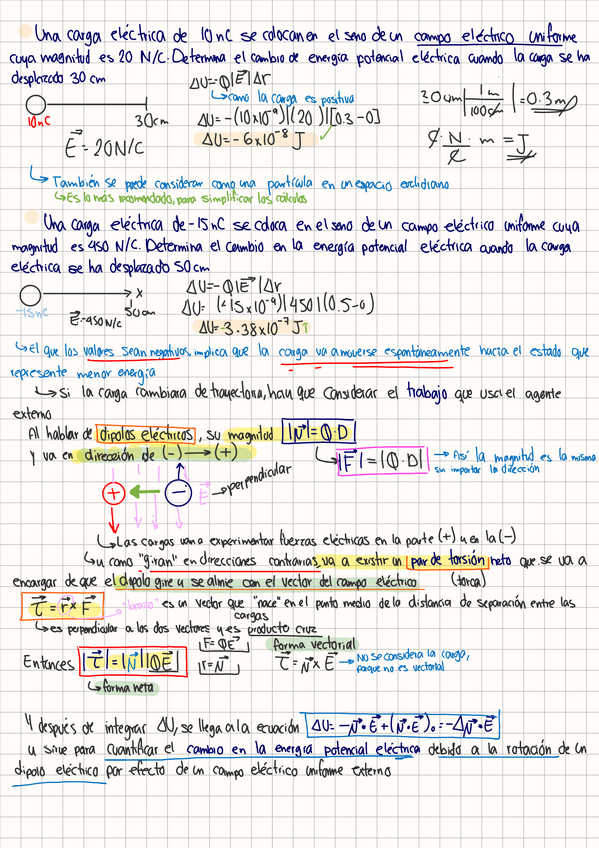 Una carga eléctrica de 10 nC se colocan en el seno de un campo eléctrico uniforme
cuya magnitud es 20 N/C. Determina el cambio de energía potencial eléctrica cuando la carga se ha
desplazado 30 cm
ΔU=-Q|E⃗|Δr
↳como la carga es positiva
10nC
30cm
ΔU=-(10x10⁻⁹)|(20)|[0.3-0]
ΔU=-6x10⁻⁸ J ✓
E⃗=20N/C
30cm| 1m / 100cm |=0.3m
C·N/C·m=J
↳También se puede considerar como una partícula en un espacio euclidiano
↳Es lo más recomendado, para simplificar los cálculos
Una carga eléctrica de -15 nC se coloca en el seno de un campo eléctrico uniforme cuya
magnitud es 450 N/C. Determina el cambio en la energía potencial eléctrica cuando la carga
eléctrica se ha desplazado 50cm
ΔU=-Q|E⃗|Δr
-15nC
x
50cm
E⃗=450N/C
ΔU= (-15x10⁻⁹)|450|(0.5-0)
ΔU= 3.38x10⁻⁷ J↑
↳El que los valores sean negativos, implica que la carga va a moverse espontáneamente hacia el estado que
represente menor energía
↳Si la carga cambiara de trayectoria, hay que considerar el trabajo que usa el agente
externo
Al hablar de dipolos eléctricos, su magnitud |N⃗|=Q·D
y va en dirección de (-)→(+)
↳|F⃗|=|Q·D| → Así la magnitud es la misma
sin importar la dirección
+ - E⃗ →perpendicular
↳Las cargas van a experimentar fuerzas eléctricas en la parte (+) y en la (-)
↳y como "giran" en direcciones contrarias, va a existir un par de torsión neto que se va a
encargar de que el dipolo gire y se alinie con el vector del campo eléctrico (torca)
τ⃗=r⃗×F⃗ "brazo" es un vector que "nace" en el punto medio de la distancia de separación entre las
cargas
↳es perpendicular a los dos vectores y es producto cruz
Entonces |τ⃗|=|N⃗||QE⃗|
↳forma neta
F=QE⃗
r=N⃗
forma vectorial
τ⃗=N⃗×E⃗ → No se considera la carga,
porque no es vectorial
Y después de integrar ΔU, se llega a la ecuación ΔU=-N⃗·E⃗+(N⃗·E⃗)₀=-ΔN⃗·E⃗
y sirve para cuantificar el cambio en la energía potencial eléctrica debido a la rotación de un
dipolo eléctrico por efecto de un campo eléctrico uniforme externo